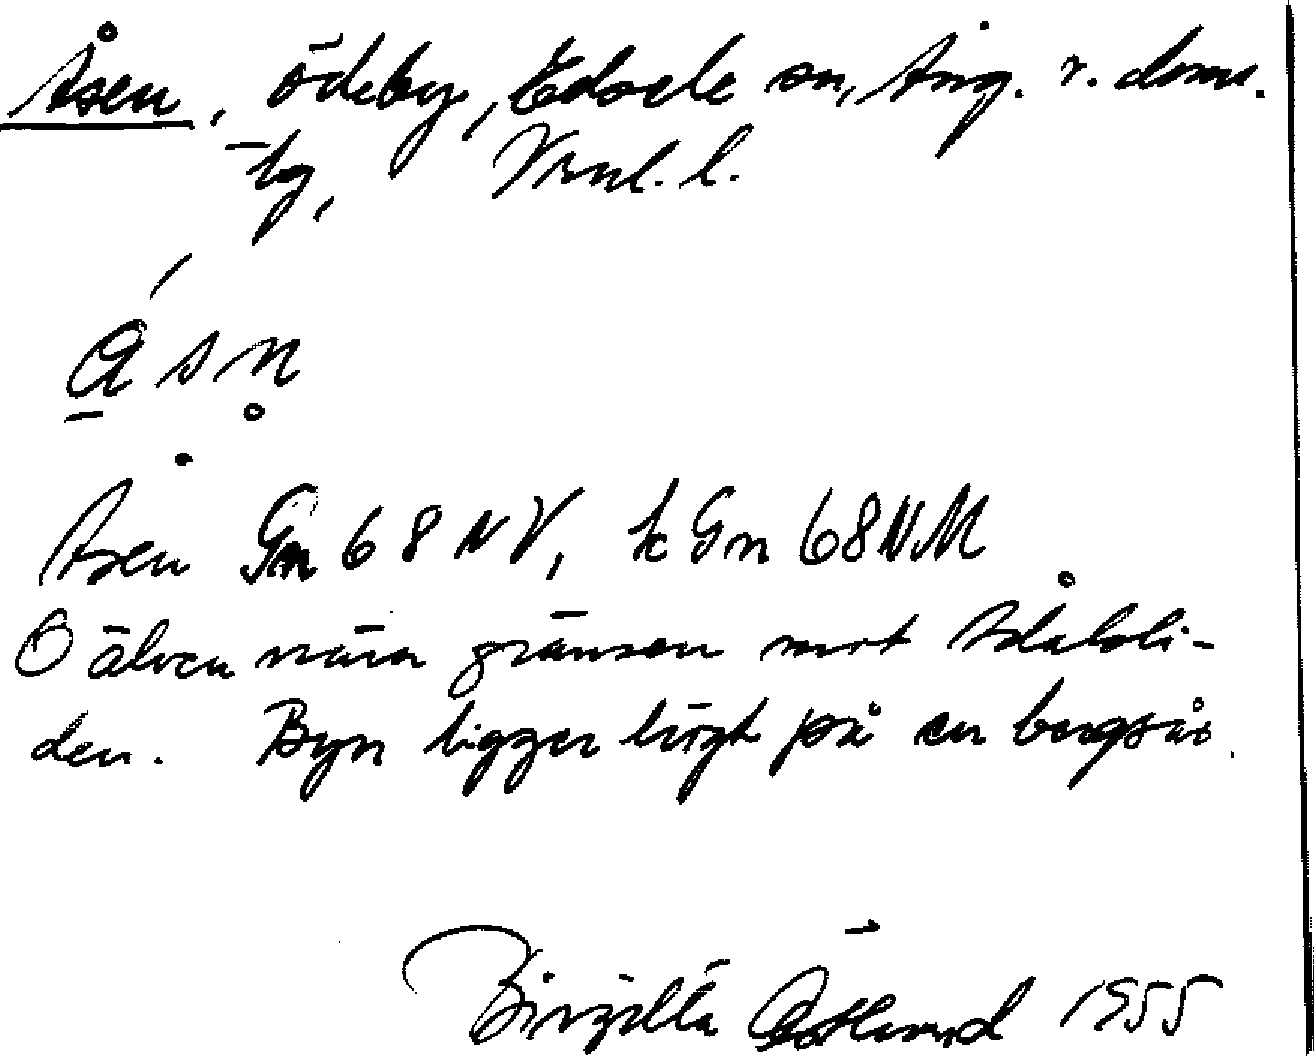 Åsen, ödeby, Edsele sn, Ång. v. doms.
-tg, Vnl. l.
ásn̥
Åsen Gn 68 NV, k Gn 68 NV
Ö älven nära gränsen mot Ådalsli-
den. Byn ligger högt på en bergsås.
Birgitta Östlund 1955